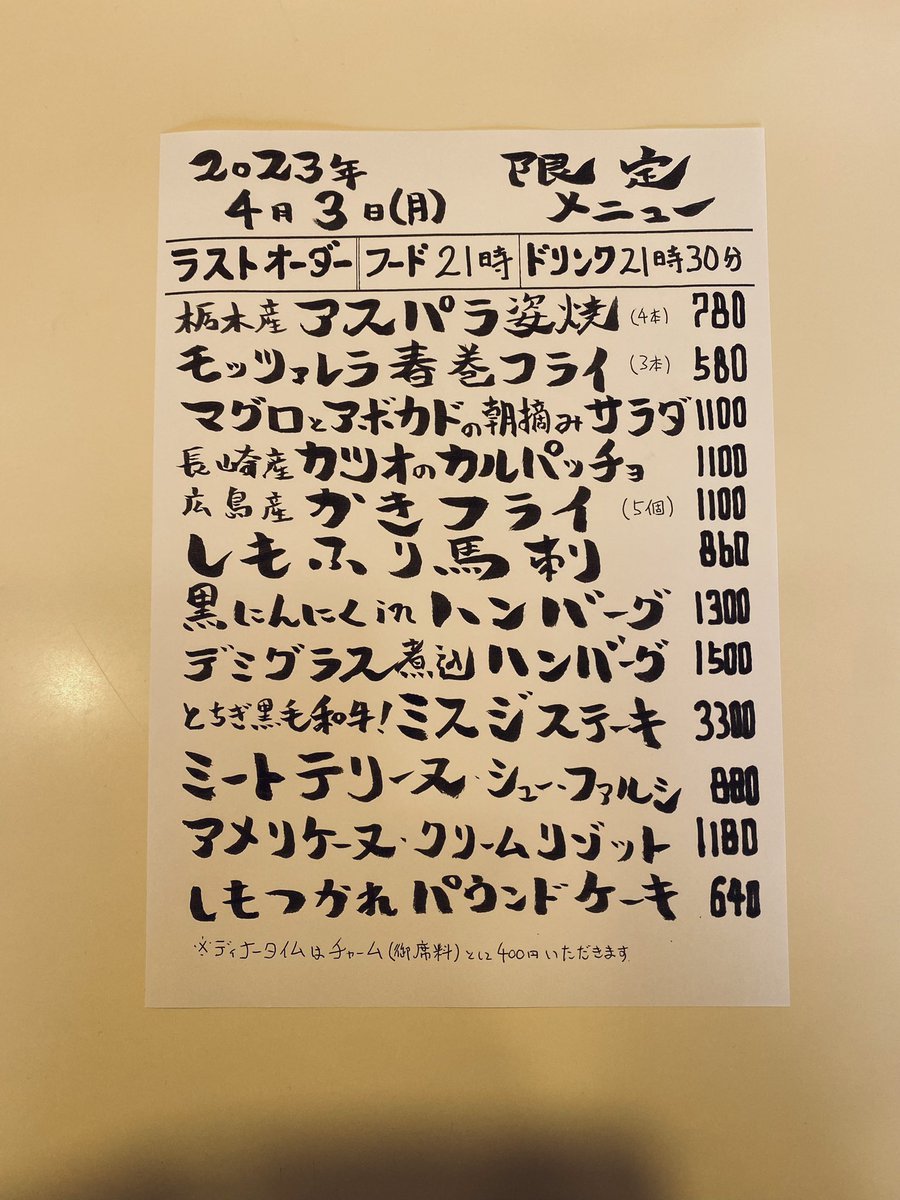 2023年
4月3日(月)
限定
メニュー
ラストオーダー フード21時 ドリンク21時30分
栃木産 アスパラ姿焼 (4本) 780
モッツァレラ春巻フライ (3本) 580
マグロとアボカドの朝摘みサラダ 1100
長崎産 カツオのカルパッチョ 1100
広島産 かきフライ (5個) 1100
しもふり馬刺 860
黒にんにくin ハンバーグ 1300
デミグラス煮込ハンバーグ 1500
とちぎ黒毛和牛!ミスジステーキ 3300
ミートテリーヌ・シュー・ファルシ 880
アメリケーヌ・クリームリゾット 1180
しもつかれパウンドケーキ 640
※ディナータイムはチャーム(御席料)として400円いただきます